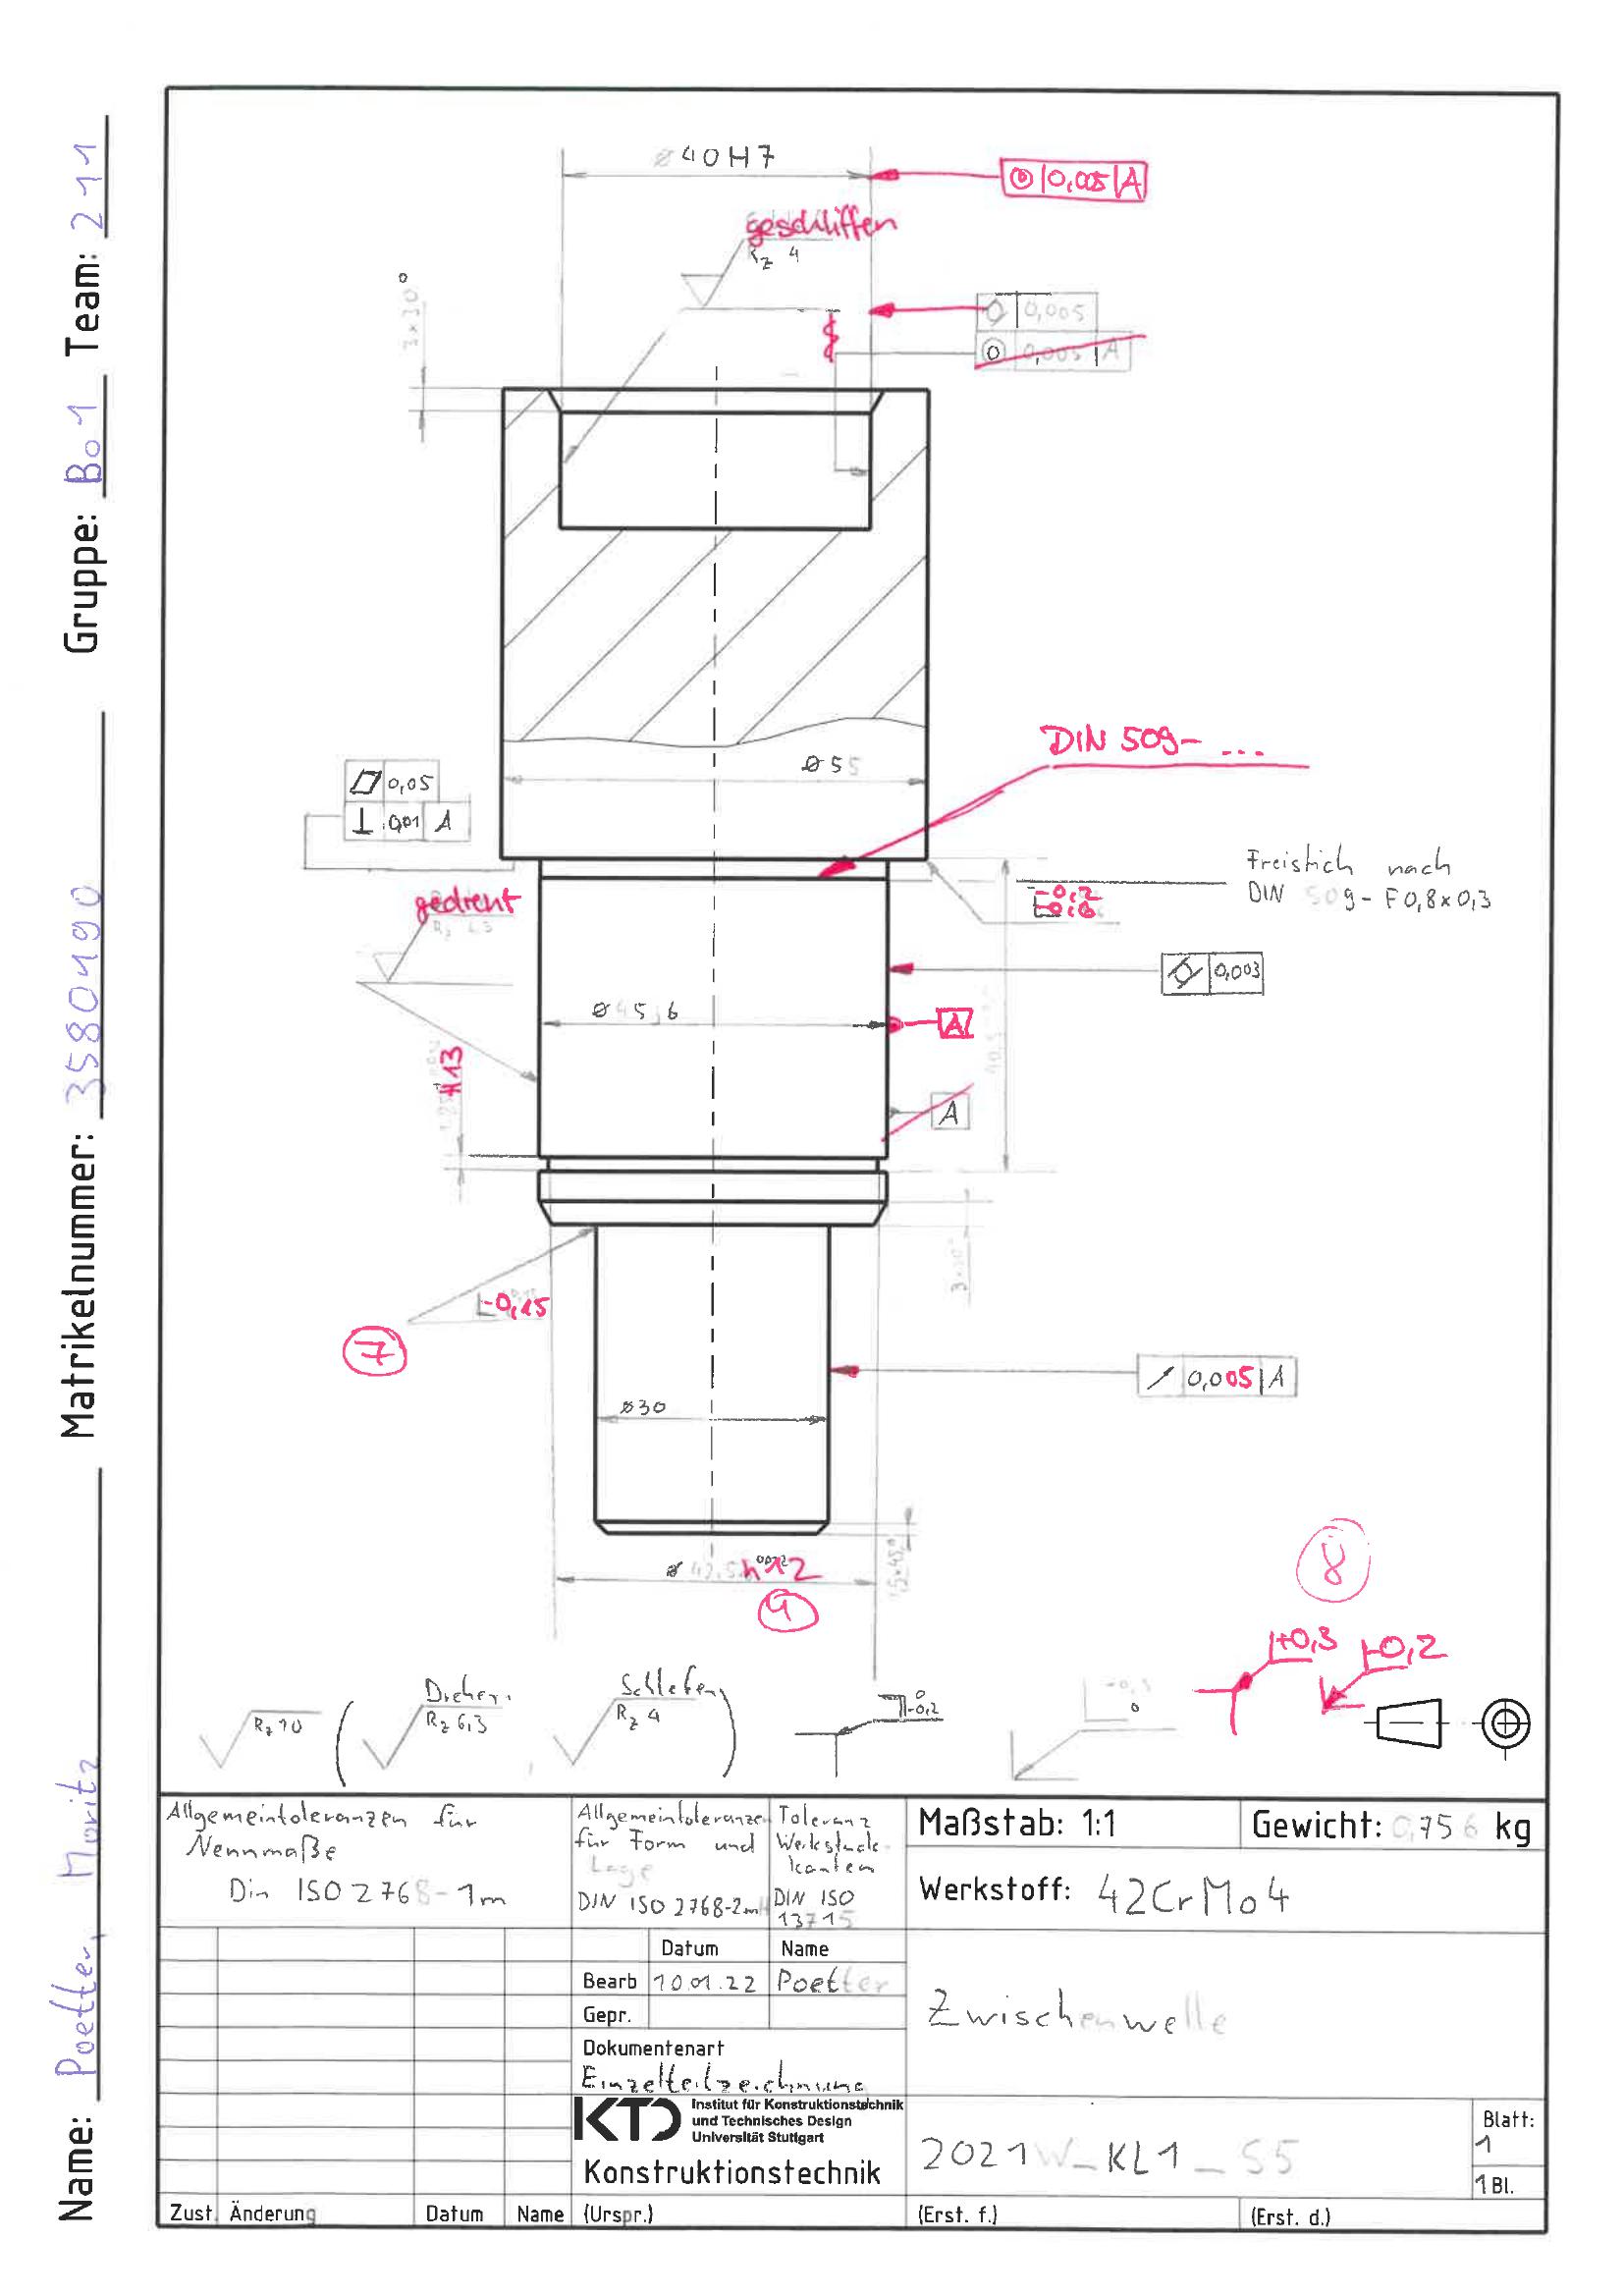 Name: Poetter, Moritz Matrikelnummer: 3580490 Gruppe: Bo1 Team: 211
⌀40H7
◎ 0,005 A
geschliffen
Rz 4
3x30°
0,005
◎ 0,005 A
DIN 509- ...
⌀55
0,05
⊥ 0,01 A
Freistich nach
DIN 509-F0,8x0,3
-0,2
gedreht
0,003
⌀45j6
A
H13
A
3x30°
-0,15
7
0,005 A
⌀30
1,5x45°
⌀42,5 h12
9
8
+0,3
-0,2
Rz 10
Drehen
Rz 6,3
Schleifen
Rz 4
0
-0,2
-0,3
0
Allgemeintoleranzen für
Nennmaße
Din ISO 2768-1m
Allgemeintoleranzen
für Form und
Lage
DIN ISO 2768-2mH
Toleranz
Werkstück-
kanten
DIN ISO
13715
Maßstab: 1:1
Gewicht: 0,756 kg
Werkstoff: 42CrMo4
Datum Name
Bearb 10.01.22 Poetter
Gepr.
Zwischenwelle
Dokumentenart
Einzelteilzeichnung
KTD Institut für Konstruktionstechnik
und Technisches Design
Universität Stuttgart
Konstruktionstechnik
2021W_KL1_S5
Blatt:
1
1 Bl.
Zust. Änderung Datum Name (Urspr.) (Erst. f.) (Erst. d.)